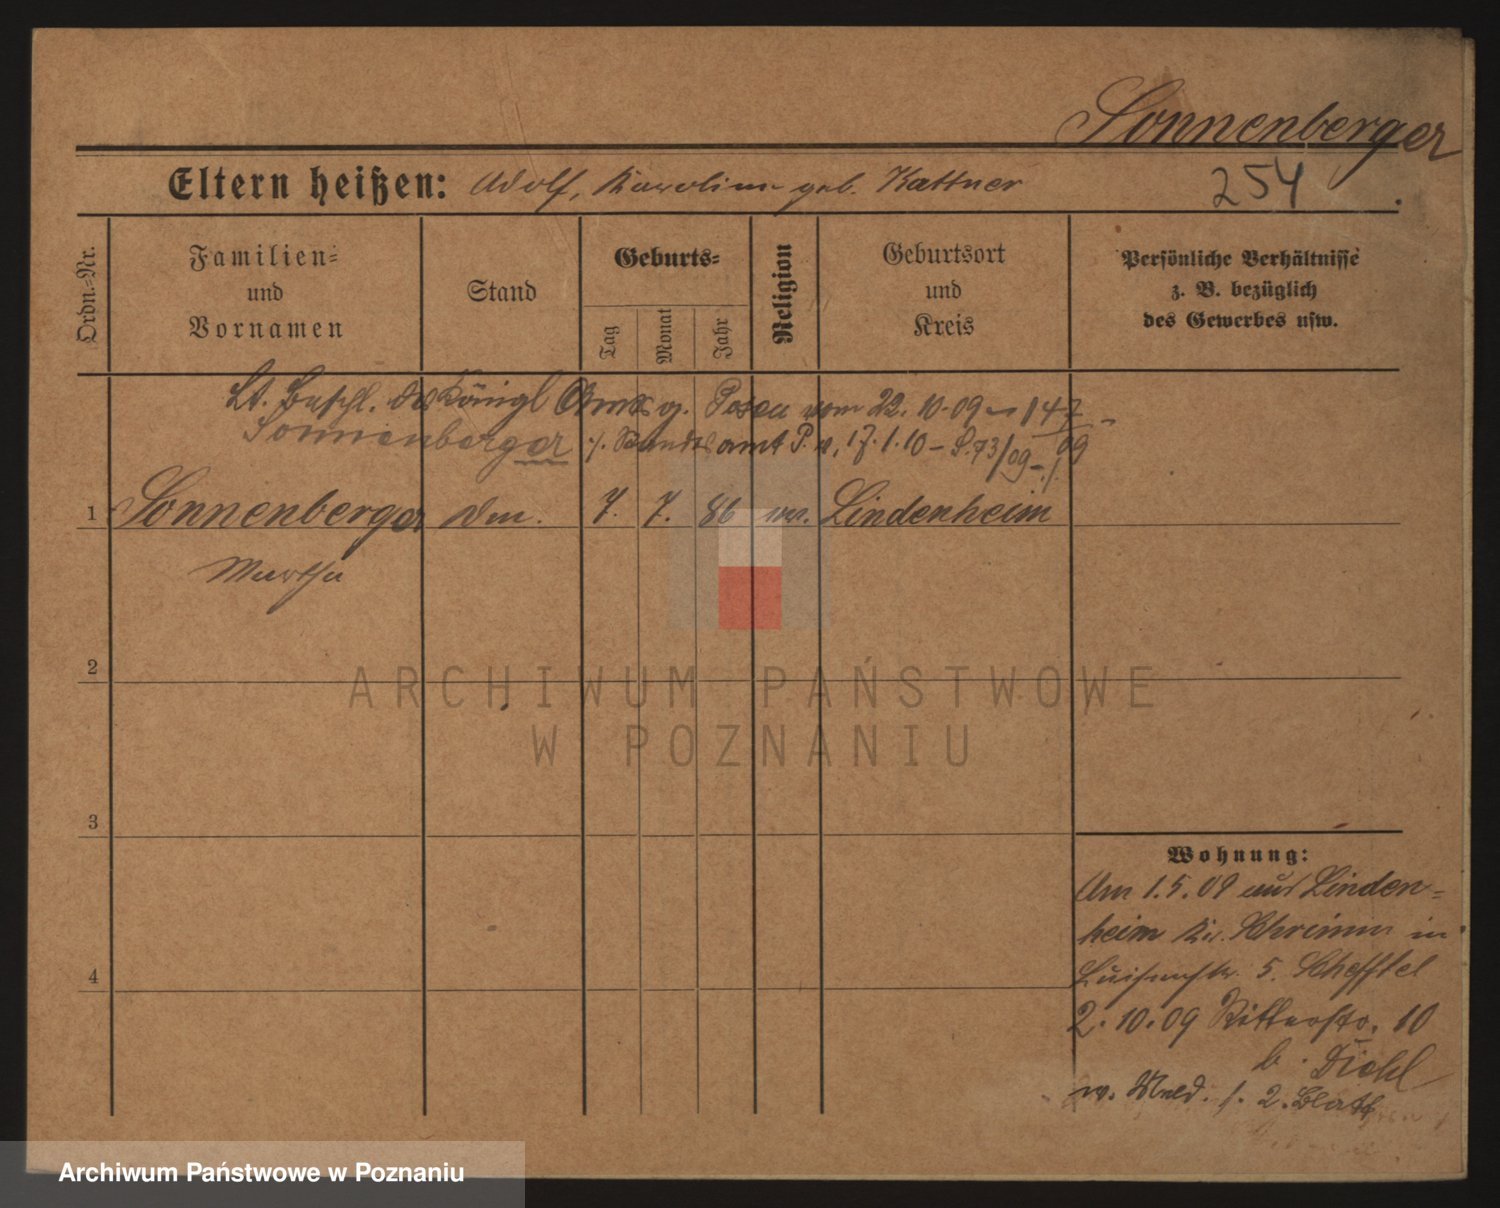 Sonnenberger
Eltern heißen: Adolf, Karoline geb. Kattner
254
Ordn.=Nr.
Familien=
und
Vornamen
Stand
Geburts=
Tag
Monat
Jahr
Religion
Geburtsort
und
Kreis
Persönliche Verhältnisse
z. B. bezüglich
des Gewerbes usw.
Lt. Beschl. des Königl Amtsg. Posen vom 22.10.09
Sonnenberger Standesamt P. v. 17.1.10
1 Sonnenberger 7. 7. 86 Lindenheim
Martha
2
3
4
Wohnung:
Am 1.5.09 aus Linden=
heim Kr. Schrimm in
Luisenstr. 5. Schefftel
2.10.09 Ritterstr. 10
b. Diehl
w. Meld. s. 2. Blatt
ARCHIWUM PAŃSTWOWE
W POZNANIU
Archiwum Państwowe w Poznaniu